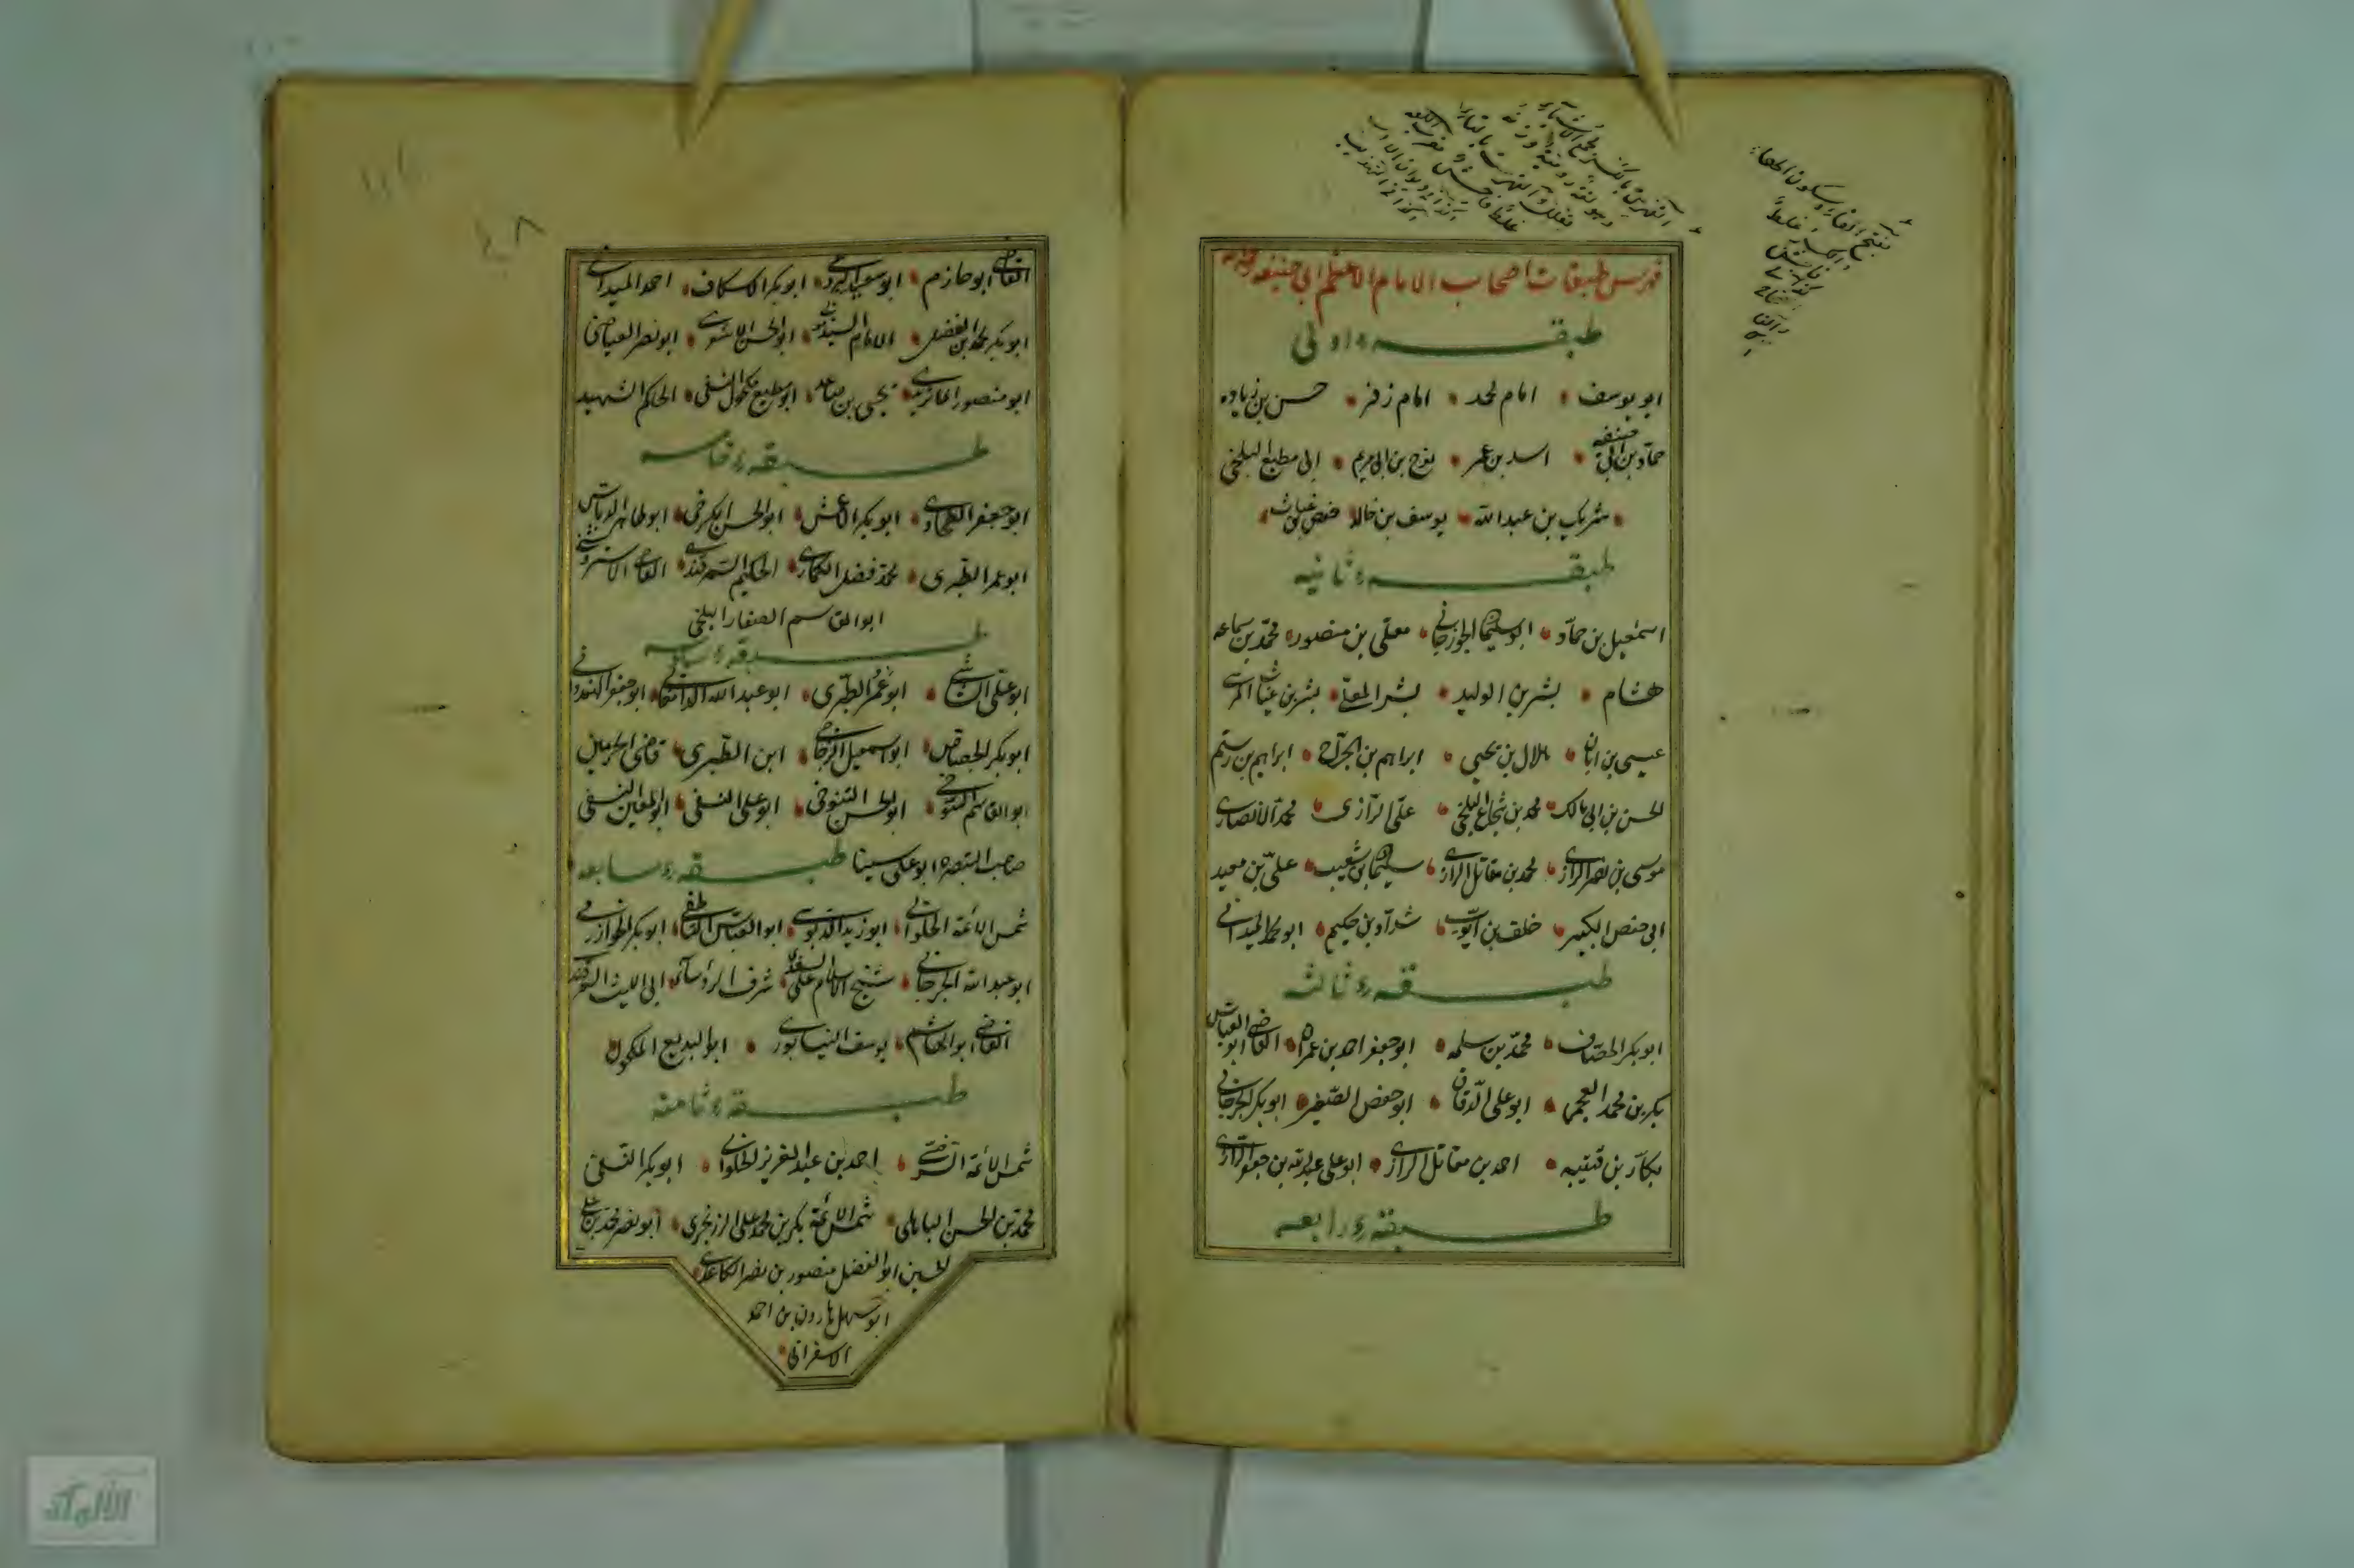 فهرس طبقات اصحاب الامام الاعظم ابى حنيفه
طبقهٔ اولى
ابو يوسف امام محمد امام زفر حسن بن زياده
حمّاد بن ابى حنيفه اسد بن عمر نوح بن ابى مريم ابى مطيع البلخى
شريك بن عبد الله يوسف بن خالد حفص بن غياث
طبقهٔ ثانيه
اسمعيل بن حمّاد ابو سليمان الجوزجانى معلّى بن منصور محمّد بن سماعه
هشام بشر بن الوليد بشر المعلّى بشر بن غياث المريسى
عيسى بن ابان هلال بن يحيى ابراهيم بن الجرّاح ابراهيم بن رستم
الحسن بن ابى مالك محمد بن شجاع البلخى علىّ الرّازى محمد الانصارى
موسى بن نصر الرازى محمد بن مقاتل الرازى سليمان بن شعيب علىّ بن معبد
ابى حفص الكبير خلف بن ايّوب شدّاد بن حكيم ابو محمد الميدانى
طبقهٔ ثالثه
ابو بكر الخصّاف محمّد بن سلمه ابو جعفر احمد بن عمران القاضى ابو العباس
بكر بن محمد العجمى ابو على الدّقاق ابو حفص الصّغير ابو بكر الجرجانى
بكّار بن قتيبه احمد بن مقاتل الرازى ابو على عبد الله بن جعفر الرّازى
طبقهٔ رابعه
القاضى ابو حازم ابو سعيد البردعى ابو بكر الاسكاف احمد الميدانى
ابو بكر محمد بن الفضل الامام السيد ابو الحسن الاشعرى ابو نصر العياضى
ابو منصور الماتريدى يحيى بن صاعد ابو مطيع مكحول النسفى الحاكم الشهيد
طبقهٔ خامسه
ابو جعفر الطحاوى ابو بكر الاعمش ابو الحسن الكرخى ابو طاهر الدباس
ابو عمر الطّبرى محمد فضل الكمارى الحكيم السّمرقندى القاضى الاستروشنى
ابو القاسم الصفار البلخى
طبقهٔ سادسه
ابو علىّ الشاشى ابو عمر الطّبرى ابو عبد الله الدامغانى ابو جعفر الهندوانى
ابو بكر الجصّاص ابو اسمعيل الزجاجى ابن الطّبرى قاضى الحرمين
ابو القاسم التنوخى ابو الحسن التنوخى ابو على النسفى ابو المعين النسفى
صاحب التبصره ابو على سينا طبقهٔ سابعه
شمس الائمّة الحلوانى ابو زيد الدّبوسى ابو العبّاس الناطفى ابو بكر الخوارزمى
ابو عبد الله الجرجانى شيخ الاسلام على السغدى شرف الرؤساء ابى الليث السمرقندى
القاضى ابو الهاشم يوسف النيسابورى ابو البديع المكحول
طبقهٔ ثامنه
شمس الائمّة السّرخسى احمد بن عبد العزيز الحلوانى ابو بكر النسفى
محمّد بن الحسن الباهلى شمس الائمّة بكر بن محمد على الزرنجرى ابو نصر محمد بن على
الحسين ابو الفضل منصور بن نصر الكاغدى
ابو سهل هارون بن احمد
الاسفراينى